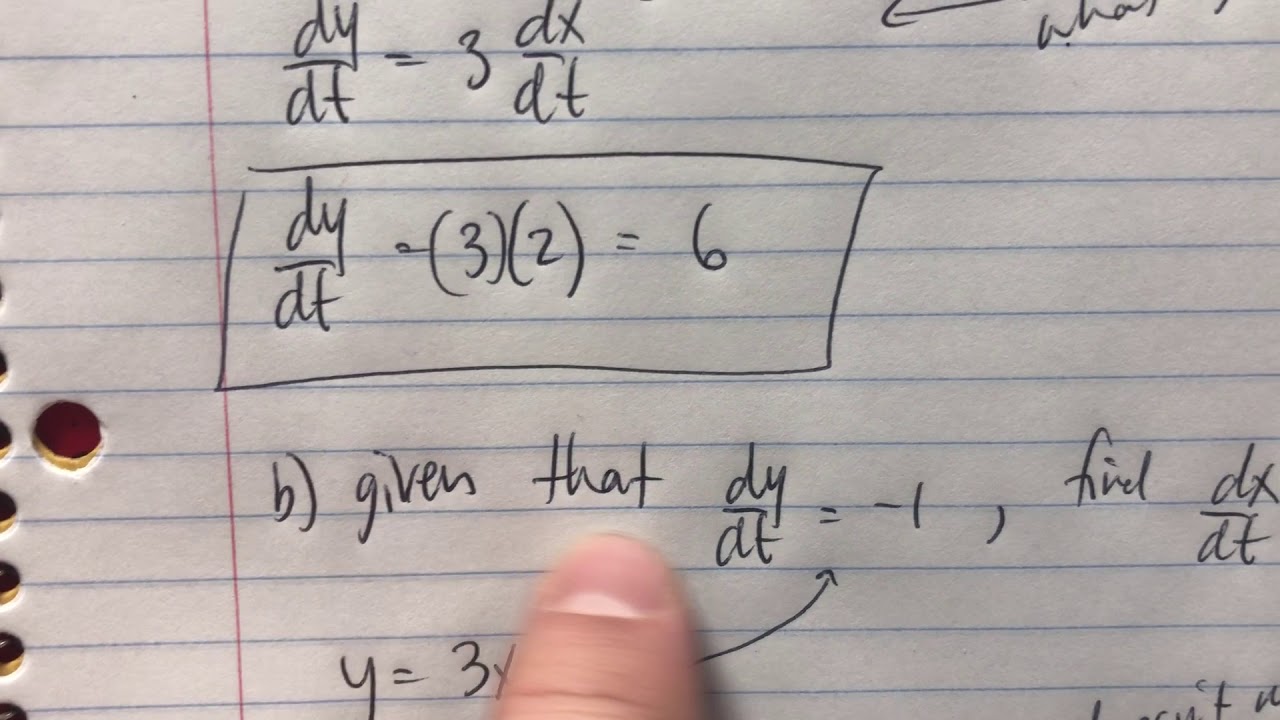 dy/dt = 3 dx/dt
dy/dt = (3)(2) = 6
b) given that dy/dt = -1 , find dx/dt
y = 3x